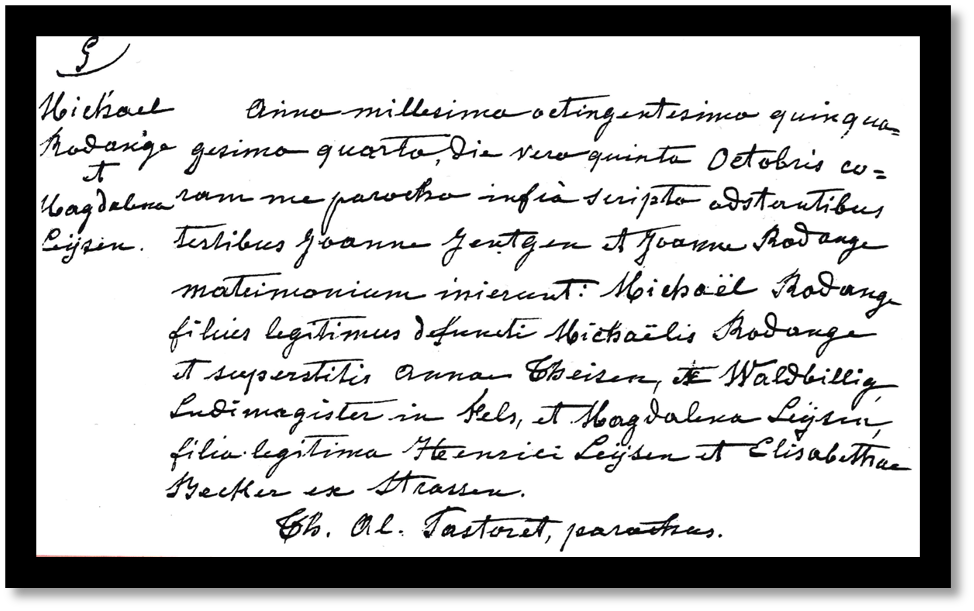 5
Michael
Rodange
et
Magdalena
Leÿsen.
Anno millesimo octingentesimo quinqua=
gesimo quarto, die vero quinta Octobris co=
ram me parocho infra scripto adstantibus
testibus Joanne Jentgen et Joanne Rodange
matrimonium inierunt: Michaël Rodange
filius legitimus defuncti Michaëlis Rodange
et superstitis Annae Theisen, ex Waldbillig,
Ludimagister in Fels, et Magdalena Leÿsen,
filia legitima Henrici Leÿsen et Elisabethae
Becker ex Strassen.
Th. Al. Pastoret, parochus.